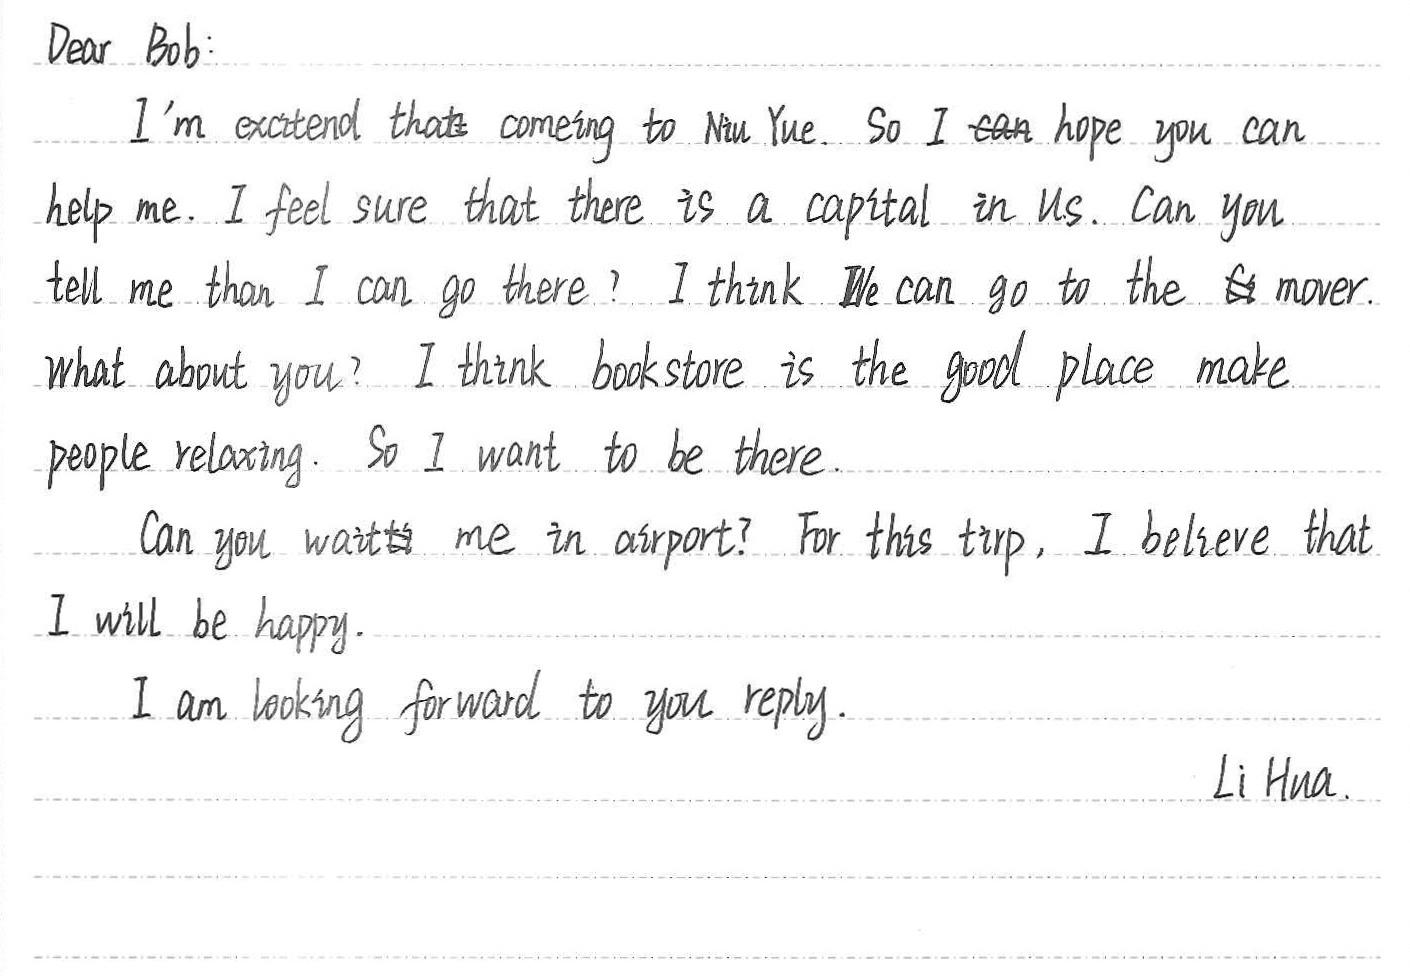 Dear Bob:
I'm excitend that comeing to Niu Yue. So I hope you can
help me. I feel sure that there is a capital in Us. Can you
tell me than I can go there? I think We can go to the mover.
What about you? I think bookstore is the good place make
people relaxing. So I want to be there.
Can you wait me in airport? For this tirp, I believe that
I will be happy.
I am looking forward to you reply.
Li Hua.